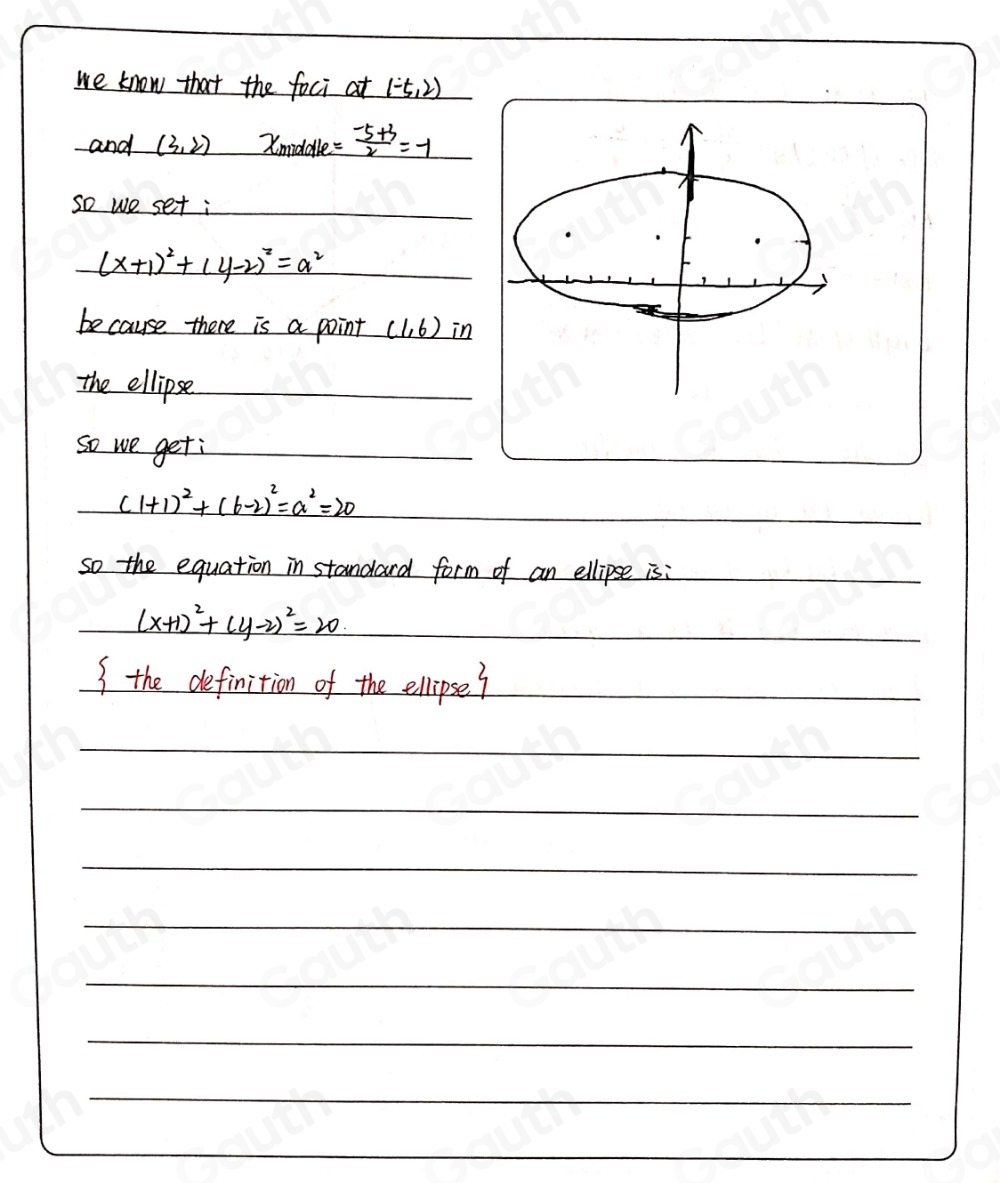 we know that the foci at (-5,2)
and (3,2) Xmiddle = (-5+3)/2 = -1
so we set:
(x+1)² + (y-2)² = a²
because there is a point (1,6) in
the ellipse
so we get:
(1+1)² + (6-2)² = a² = 20
so the equation in standard form of an ellipse is:
(x+1)² + (y-2)² = 20.
{ the definition of the ellipse }